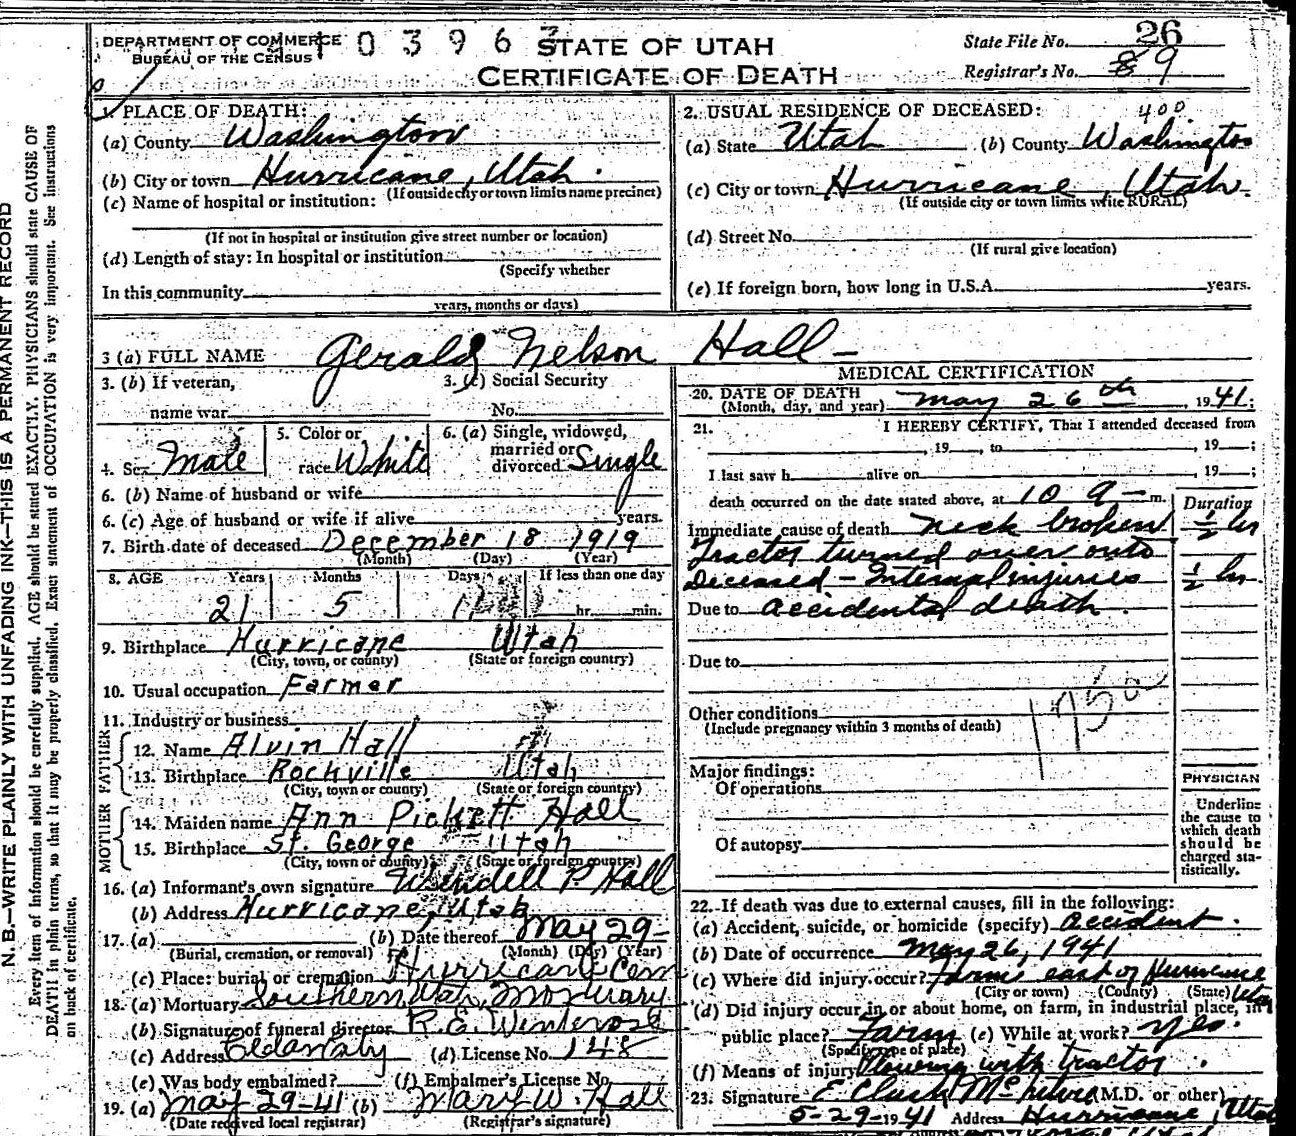 DEPARTMENT OF COMMERCE
BUREAU OF THE CENSUS
0 3 9 6 3
STATE OF UTAH
CERTIFICATE OF DEATH
State File No. 26
Registrar's No. 8 9
1. PLACE OF DEATH:
(a) County Washington
(b) City or town Hurricane, Utah.
(If outside city or town limits name precinct)
(c) Name of hospital or institution:
(If not in hospital or institution give street number or location)
(d) Length of stay: In hospital or institution
(Specify whether
In this community
years, months or days)
2. USUAL RESIDENCE OF DECEASED: 400
(a) State Utah (b) County Washington
(c) City or town Hurricane, Utah
(If outside city or town limits write RURAL)
(d) Street No.
(If rural give location)
(e) If foreign born, how long in U.S.A. years.
3 (a) FULL NAME Gerald Nelson Hall
3. (b) If veteran,
name war
3. (c) Social Security
No.
4. Sex Male
5. Color or
race White
6. (a) Single, widowed,
married or
divorced Single
6. (b) Name of husband or wife
6. (c) Age of husband or wife if alive years.
7. Birth date of deceased December 18 1919
(Month) (Day) (Year)
8. AGE Years Months Days If less than one day
21 5 hr. min.
9. Birthplace Hurricane Utah
(City, town, or county) (State or foreign country)
10. Usual occupation Farmer
11. Industry or business
FATHER
12. Name Alvin Hall
13. Birthplace Rockville Utah
(City, town or county) (State or foreign country)
MOTHER
14. Maiden name Ann Pickett Hall
15. Birthplace St. George Utah
(City, town or county) (State or foreign country)
16. (a) Informant's own signature Wendell P. Hall
(b) Address Hurricane, Utah
17. (a) (b) Date thereof May 29-
(Burial, cremation, or removal) (Month) (Day) (Year)
(c) Place: burial or cremation Hurricane Cem
18. (a) Mortuary Southern Utah Mortuary
(b) Signature of funeral director R.E. Winterose
(c) Address (d) License No. 148
(e) Was body embalmed? (f) Embalmer's License No.
19. (a) May 29-41 (b) Mary W. Hall
(Date received local registrar) (Registrar's signature)
MEDICAL CERTIFICATION
20. DATE OF DEATH
(Month, day, and year) May 26th, 1941;
21. I HEREBY CERTIFY, That I attended deceased from
, 19 , to , 19 ;
I last saw h alive on , 19 ;
death occurred on the date stated above, at 10 a-m.
Duration
Immediate cause of death neck broken ½ hr
Tractor turned over onto
Deceased - Internal injuries ½ hr.
Due to accidental death.
Due to
Other conditions
(Include pregnancy within 3 months of death)
Major findings:
Of operations
Of autopsy
PHYSICIAN
Underline
the cause to
which death
should be
charged sta-
tistically.
22. If death was due to external causes, fill in the following:
(a) Accident, suicide, or homicide (specify) Accident.
(b) Date of occurrence May 26, 1941
(c) Where did injury occur? farm east of Hurricane Utah
(City or town) (County) (State)
(d) Did injury occur in or about home, on farm, in industrial place, in
public place? Farm (e) While at work? Yes.
(Specify type of place)
(f) Means of injury Plowing with tractor.
23. Signature (M.D. or other)
5-29-1941 Address Hurricane, Utah
N.B.—WRITE PLAINLY WITH UNFADING INK—THIS IS A PERMANENT RECORD
Every item of information should be carefully supplied. AGE should be stated EXACTLY. PHYSICIANS should state CAUSE OF
DEATH in plain terms, so that it may be properly classified. Exact statement of OCCUPATION is very important. See instructions
on back of certificate.